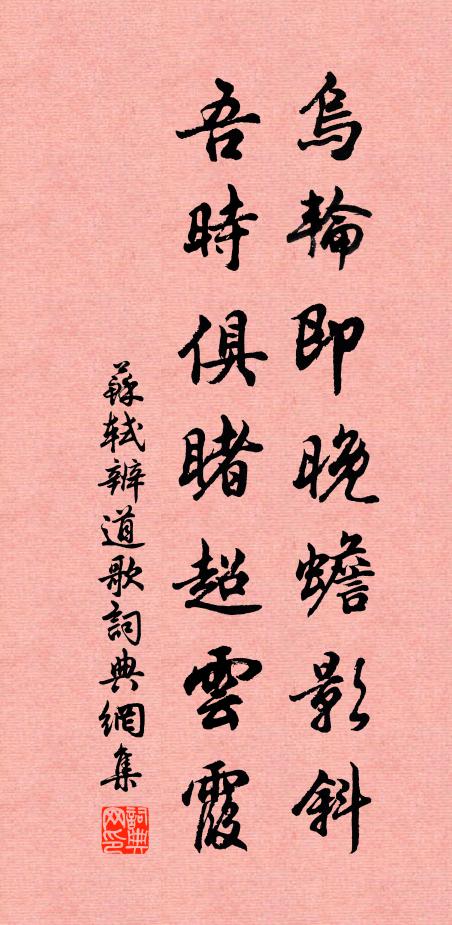 烏輪即晚蟾影斜
吾時俱睹超雲霞
蘇軾辨道歌詞典網集
詞典網印